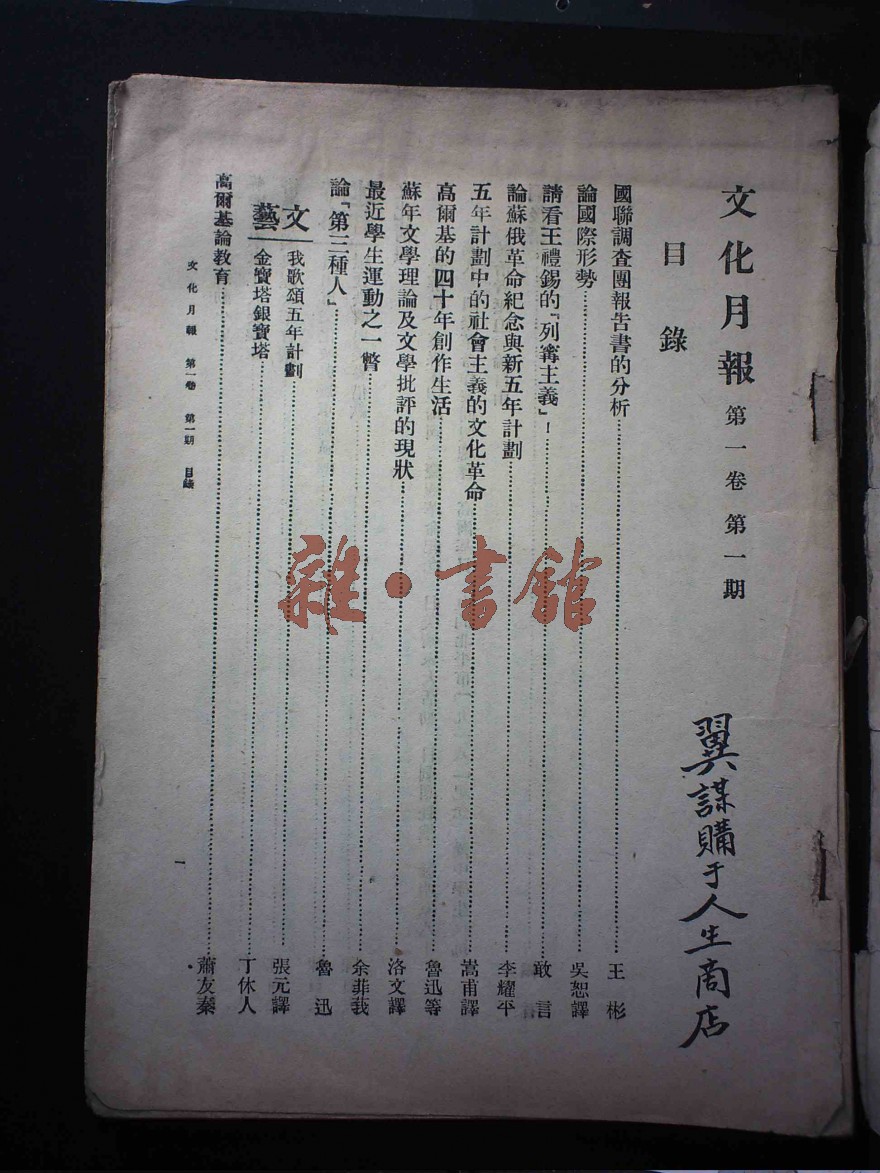 文化月報 第一卷 第一期
目錄
國聯調查團報告書的分析……王彬
論國際形勢……吳恕譯
請看王禮錫的「列寗主義」！……敢言
論蘇俄革命紀念與新五年計劃……李耀平
五年計劃中的社會主義的文化革命……嵩甫譯
高爾基的四十年創作生活……魯迅等
蘇年文學理論及文學批評的現狀……洛文譯
最近學生運動之一瞥……余菲莪
論「第三種人」……魯迅
文藝
我歌頌五年計劃……張元譯
金寶塔銀寶塔……丁休人
高爾基論教育……蕭友秦
文化月報 第一卷 第一期 目錄
一
翼謀購于人生商店
雜·書館